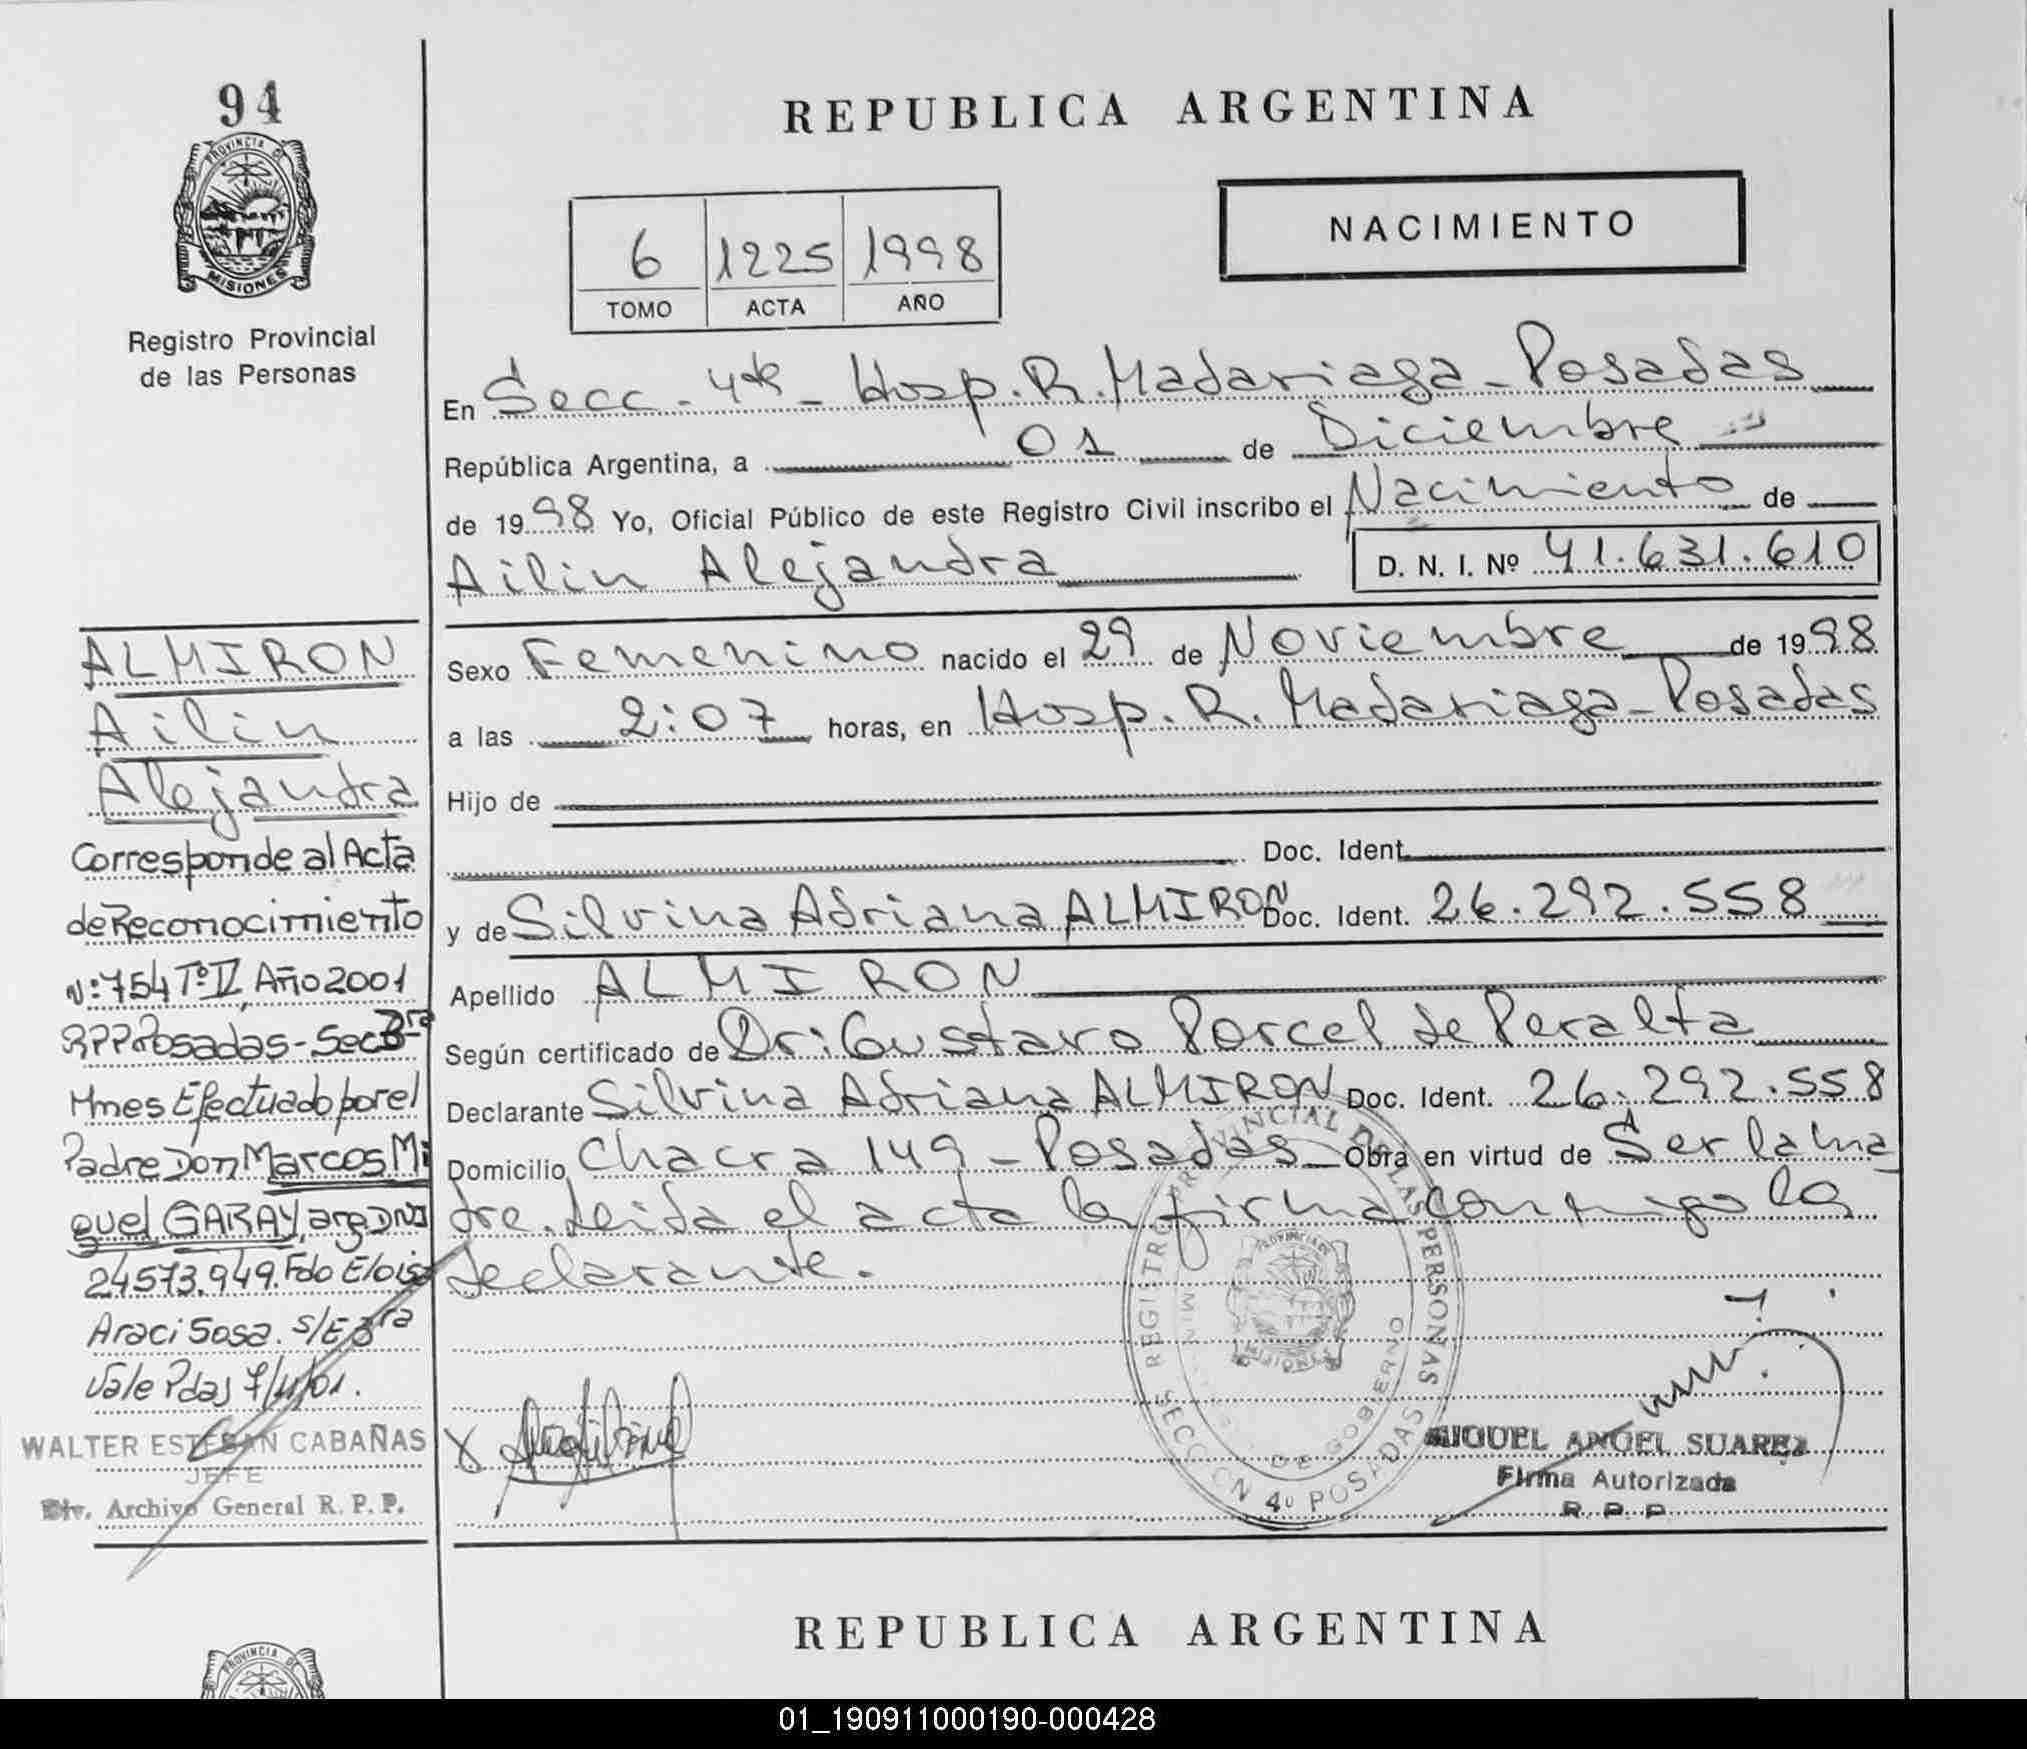 94
PROVINCIA DE
MISIONES
Registro Provincial
de las Personas
ALMIRON
Ailin
Alejandra
Corresponde al Acta
de Reconocimiento
N:754 Tº IV, Año 2001
RPP Posadas - Sec 3ra
Mnes Efectuado por el
Padre Don Marcos Mi
guel GARAY, arg DNI
24573.949. Fdo Eloisa
Araci Sosa. S/E 3ra
Vale Pdas 7/11/01.
WALTER ESTEBAN CABAÑAS
JEFE
Div. Archivo General R. P. P.
REPUBLICA ARGENTINA
6 1225 1998
TOMO ACTA AÑO
NACIMIENTO
En Secc - 4ta - Hosp. R. Madariaga - Posadas
República Argentina, a 01 de Diciembre
de 1998 Yo, Oficial Público de este Registro Civil inscribo el Nacimiento de
Ailin Alejandra D. N. I. Nº 41.631.610
Sexo Femenino nacido el 29 de Noviembre de 1998
a las 2:07 horas, en Hosp. R. Madariaga - Posadas
Hijo de
Doc. Ident.
y de Silvina Adriana ALMIRON Doc. Ident. 26.292.558
Apellido ALMIRON
Según certificado de Dr: Gustavo Porcel de Peralta
Declarante Silvina Adriana ALMIRON Doc. Ident. 26.292.558
Domicilio Chacra 149 - Posadas - Obra en virtud de Ser la ma
dre. Leida el acta la firma conmigo la
declarante.
REGISTRO PROVINCIAL DE LAS PERSONAS
SECCION 4º POSADAS
DE GOBIERNO
PROVINCIA DE
MISIONES
MIGUEL ANGEL SUAREZ
Firma Autorizada
R. P. P.
REPUBLICA ARGENTINA
PROVINCIA DE
01_190911000190-000428